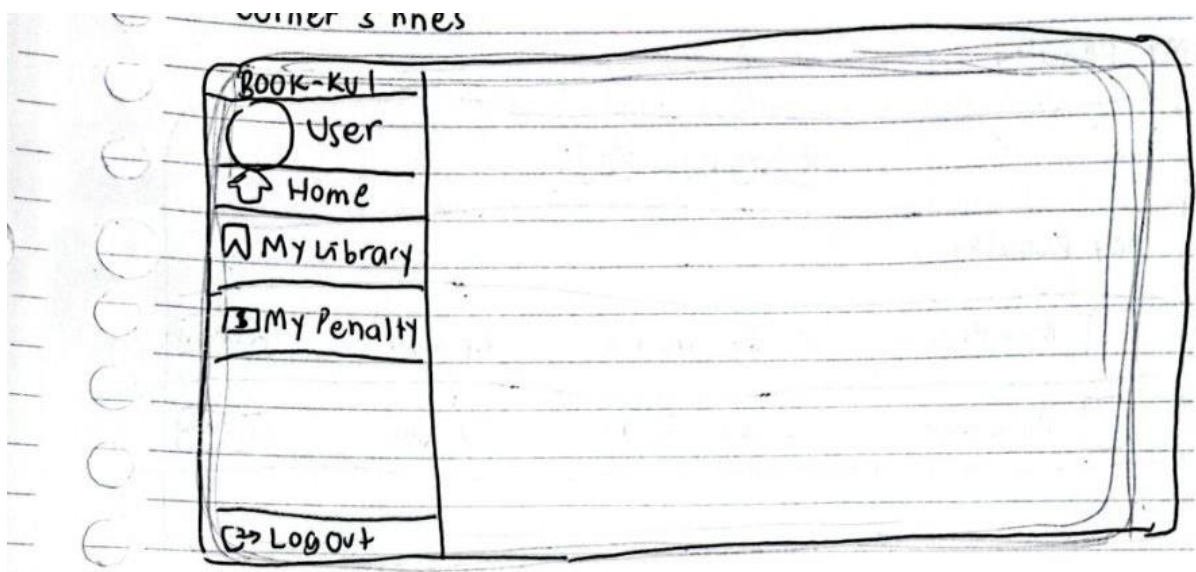 corner 3 lines
BOOK-KU |
User
Home
My Library
$ My Penalty
Logout